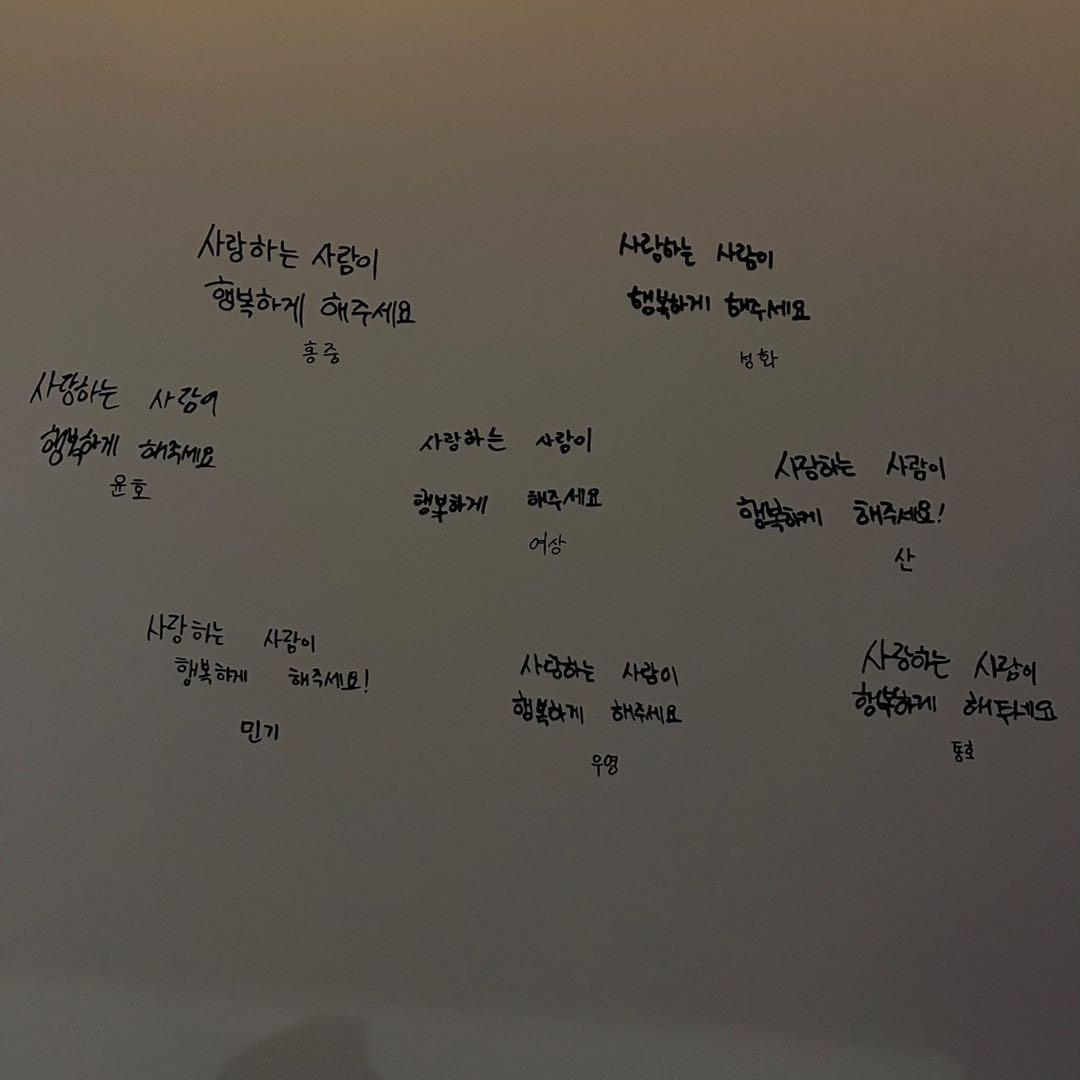 사랑하는 사람이
행복하게 해주세요
홍중
사랑하는 사람이
행복하게 해주세요
성화
사랑하는 사람이
행복하게 해주세요
윤호
사랑하는 사람이
행복하게 해주세요
여상
사랑하는 사람이
행복하게 해주세요!
산
사랑하는 사람이
행복하게 해주세요!
민기
사랑하는 사람이
행복하게 해주세요
우영
사랑하는 사람이
행복하게 해주세요